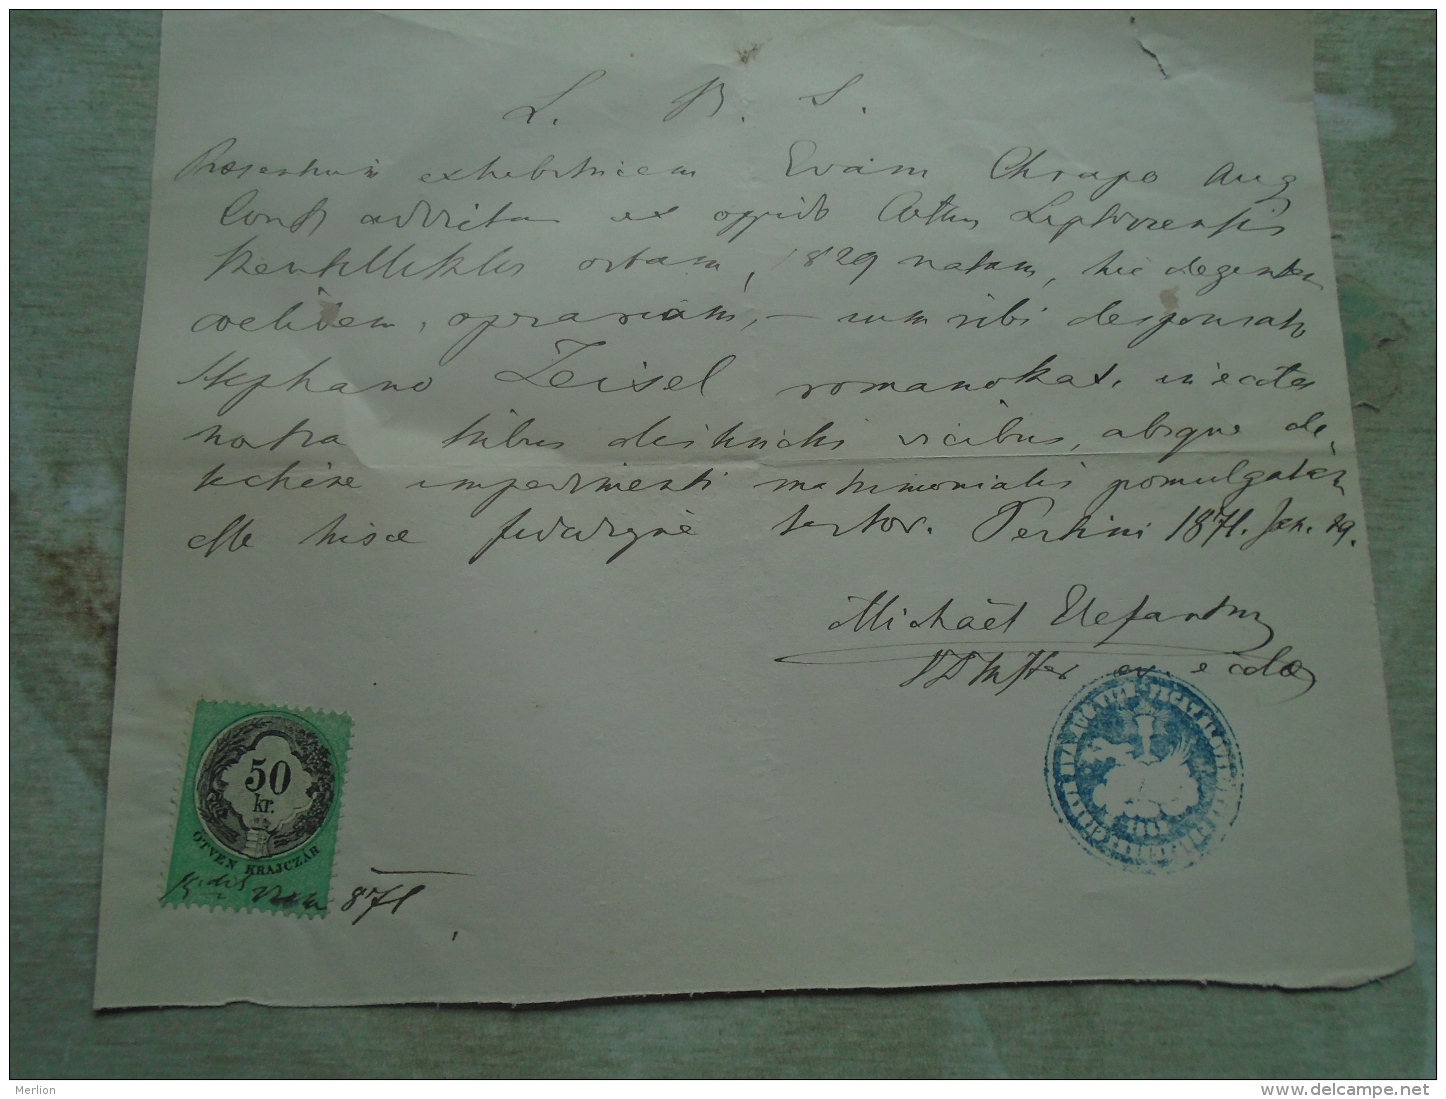 L. B. S.
Praesentium exhibitricem Evam Chrapo Aug
Conf. addictam ex oppido Cottus Liptoviensis
Szent Miklós ortam, 1829 natam, hic degentem
coelibem, oprariam, – cum sibi desponsato
Stephano Zeisel romanokat. in ecclesia
nostra tribus distinctis vicibus, absque de-
tectione impedimenti matrimonialis promulgatam
esse hisce fidedigne testor. Pestini 1871. Jan. 29.
Michaël Elefantny
VDMster ev. eccl
50
kr.
ÖTVEN KRAJCZÁR
871
Merlion
www.delcampe.net